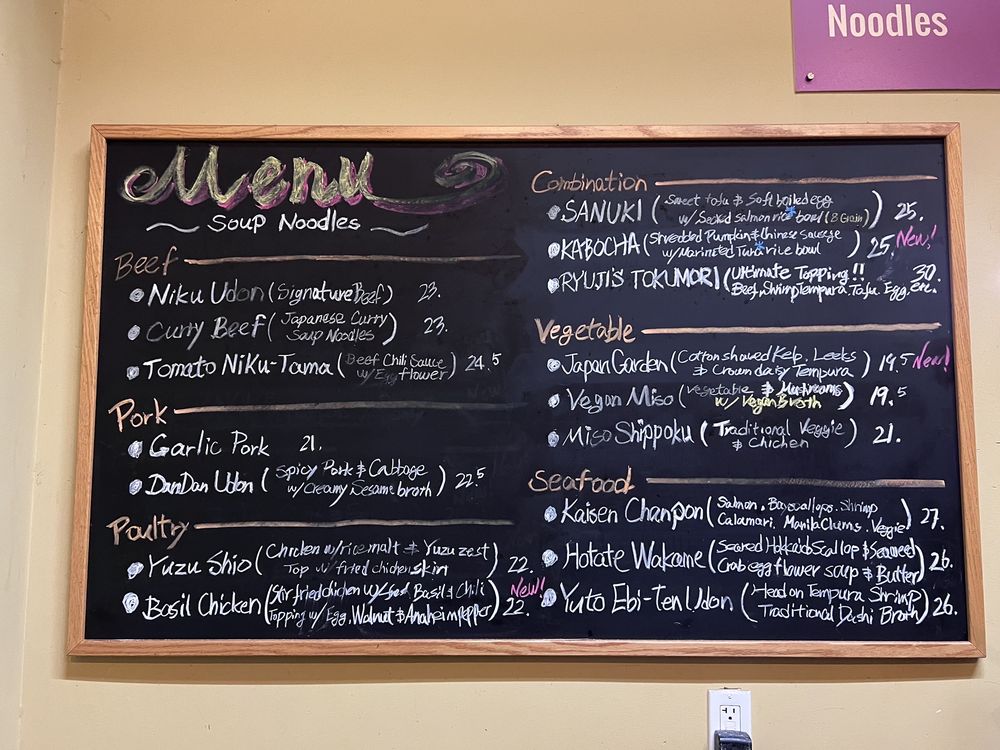 Noodles
Menu
Soup Noodles
Beef
Niku Udon (Signature Beef) 23.
Curry Beef (Japanese Curry
Soup Noodles) 23.
Tomato Niku-Tama (Beef Chili Sauce
w/ Egg flower) 24.5
Pork
Garlic Pork 21.
DanDan Udon (Spicy Pork & Cabbage
w/ Creamy Sesame broth) 22.5
Poultry
Yuzu Shio (Chicken w/ rice malt & Yuzu zest
Top w/ fried chicken skin) 22.
Basil Chicken (Stir fried chicken w/ Basil & Chili
Topping w/ Egg, Walnut & Anaheim pepper) 22. New!
Combination
SANUKI (Sweet tofu & Soft boiled egg
w/ Seared salmon rice bowl (8 Grain)) 25.
KABOCHA (Shredded Pumpkin & Chinese Sausege
w/ Marinated Tuna rice bowl) 25. New!
RYUJI'S TOKUMORI (Ultimate Topping!!
Beef, Shrimp Tempura, Tofu. Egg, etc. 30.
Vegetable
Japan Garden (Cotton shaved Kelp. Leeks
& Crown daisy Tempura) 19.5 New!
Vegan Miso (Vegetable & Mushrooms
w/ Vegan Broth) 19.5
Miso Shippoku (Traditional Veggie
& Chicken) 21.
Seafood
Kaisen Chanpon (Salmon, Bay scallops. Shrimp
Calamari. Manila Clams. Veggie) 27.
Hotate Wakame (Seared Hokkaido Scallop & Seaweed
Crab egg flower soup & Butter) 26.
Yuto Ebi-Ten Udon (Head on Tempura Shrimp
Traditional Dashi Broth) 26.